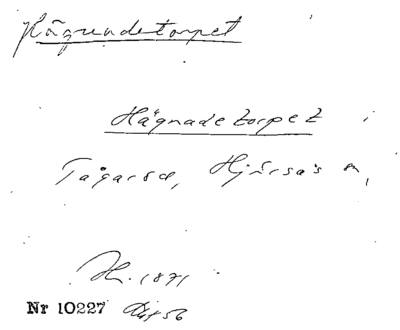 Hägnadetorpet
Hägnadetorpet i
Tågarod, Hjärsås sn,
Hr. 1871
Nr 10227